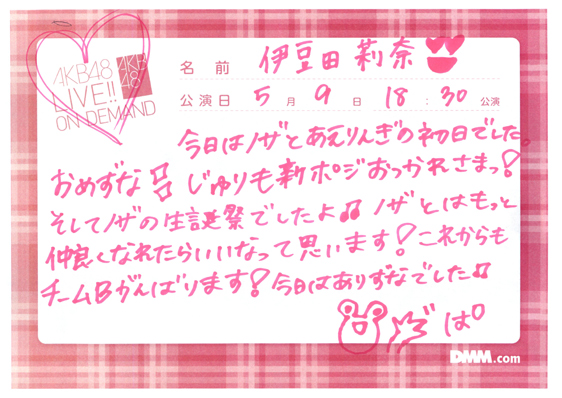 AKB48
LIVE!!
ON DEMAND
AKB
48
名前 伊豆田莉奈
公演日 5月9日 18:30公演
今日はノザとあえりんぎの初日でした。
おめずな!! じゅりも新ポジおっかれさまっ!
そしてノザの生誕祭でしたよ♫ ノザとはもっと
仲良くなれたらいいなって思います! これからも
チームBがんばります! 今日はありずなでした♫
ば°
DMM.com